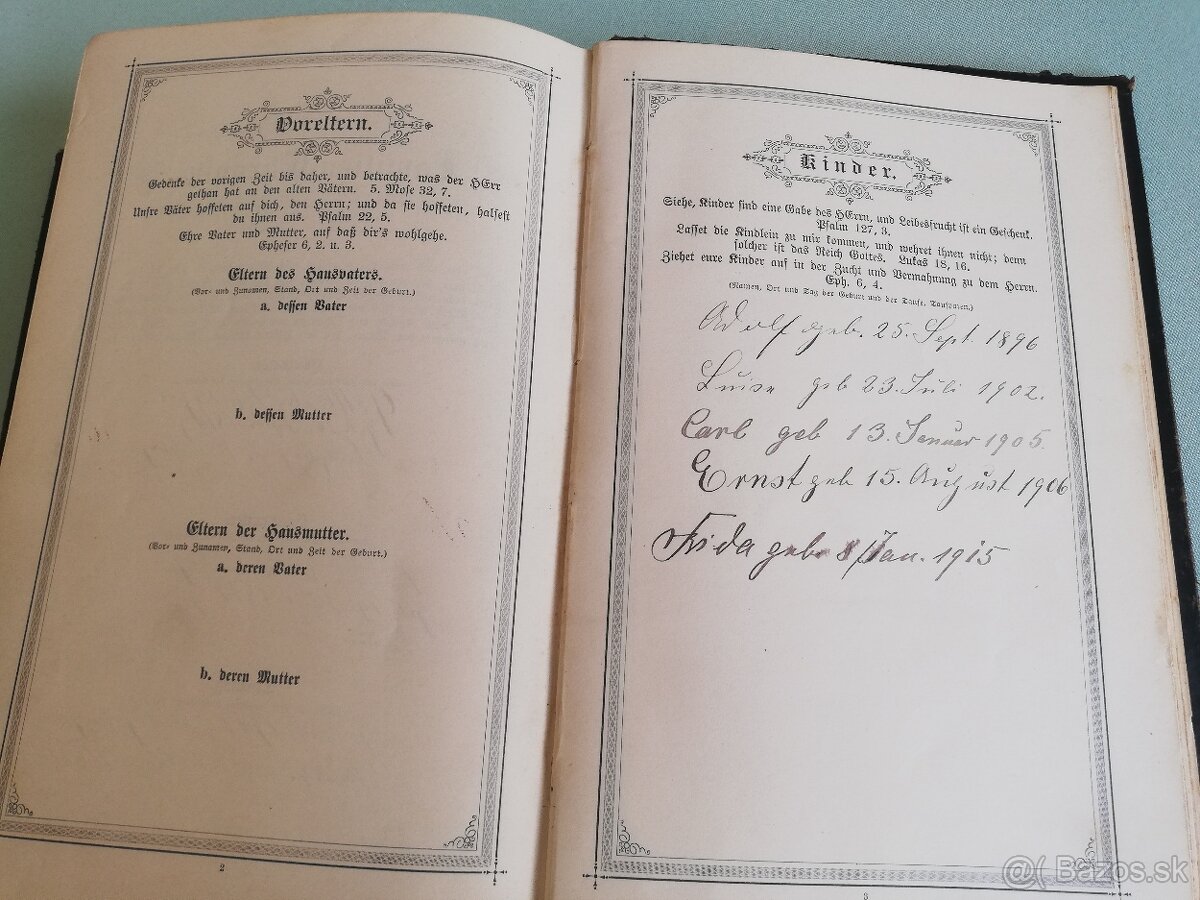 Voreltern.
Gedenke der vorigen Zeit bis daher, und betrachte, was der HErr
gethan hat an den alten Vätern. 5. Mose 32, 7.
Unsre Väter hoffeten auf dich, den Herrn; und da sie hoffeten, halfest
du ihnen aus. Psalm 22, 5.
Ehre Vater und Mutter, auf daß dir's wohlgehe.
Epheser 6, 2. u. 3.
Eltern des Hausvaters.
(Vor- und Zunamen, Stand, Ort und Zeit der Geburt.)
a. dessen Vater
b. dessen Mutter
Eltern der Hausmutter.
(Vor- und Zunamen, Stand, Ort und Zeit der Geburt.)
a. deren Vater
b. deren Mutter
2
Kinder.
Siehe, Kinder sind eine Gabe des HErrn, und Leibesfrucht ist ein Geschenk.
Psalm 127, 3.
Lasset die Kindlein zu mir kommen, und wehret ihnen nicht; denn
solcher ist das Reich Gottes. Lukas 18, 16.
Ziehet eure Kinder auf in der Zucht und Vermahnung zu dem Herrn.
Eph. 6, 4.
(Namen, Ort und Tag der Geburt und der Taufe, Taufnamen.)
Adolf geb. 25. Sept. 1896
Luise geb 23. Juli 1902.
Carl geb 13. Januar 1905.
Ernst geb 15. August 1906
Frida geb. 8 Jan. 1915
3
@( Bazos.sk